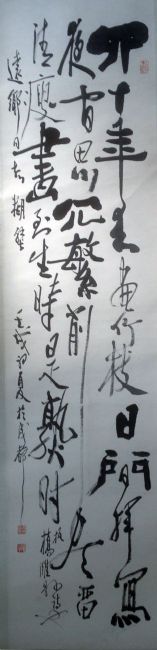 四十年来画竹枝日間揮寫
夜間思冗繁削尽留
清瘦畫到生時是熟时 板橋
糊壁 壬戌初夏於成都